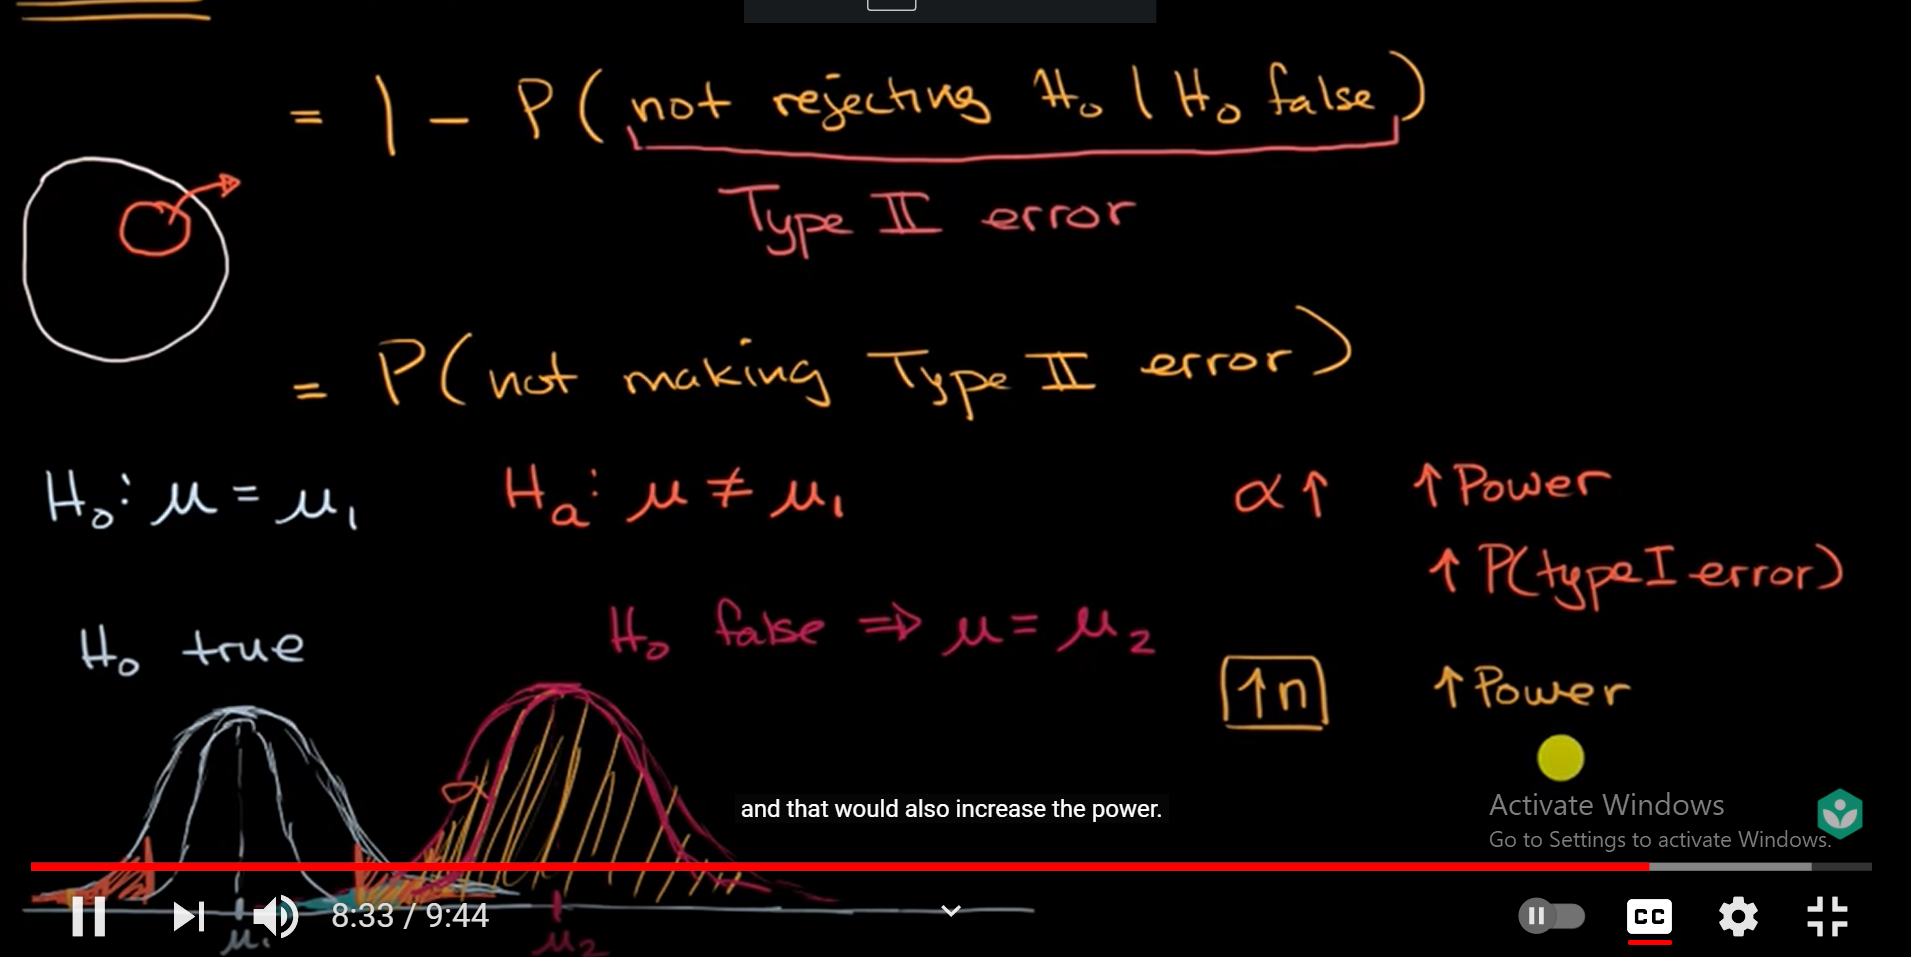 = 1 - P ( not rejecting H₀ | H₀ false )
Type II error
= P ( not making Type II error )
H₀: μ = μ₁ Hₐ: μ ≠ μ₁ α ↑ ↑ Power
↑ P(type I error)
H₀ true H₀ false ⇒ μ = μ₂
↑n ↑ Power
α
and that would also increase the power.
Activate Windows
Go to Settings to activate Windows.
8:33 / 9:44
CC
μ₁ μ₂